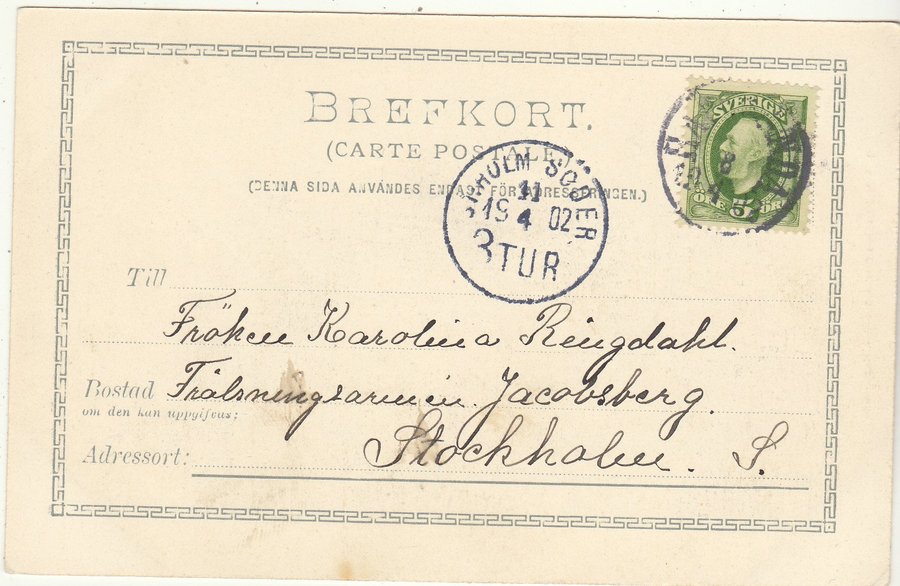 BREFKORT.
(CARTE POSTALE)
(DENNA SIDA ANVÄNDES ENDAST FÖR ADRESSERINGEN.)
SVERIGE
ÖRE 5 ÖRE
STHOLM SÖDER
11
19 4 02
3 TUR
Till
Fröken Karolina Ringdahl.
Bostad Frälsningsarmén. Jacobsberg.
om den kan uppgifvas:
Adressort: Stockholm. S.